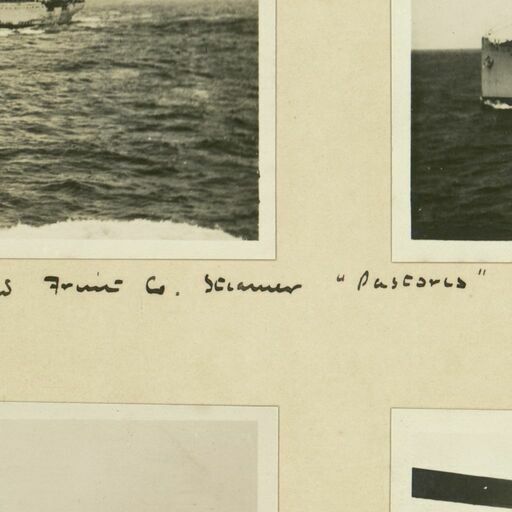 Fruit Co. Steamer "Pastores"